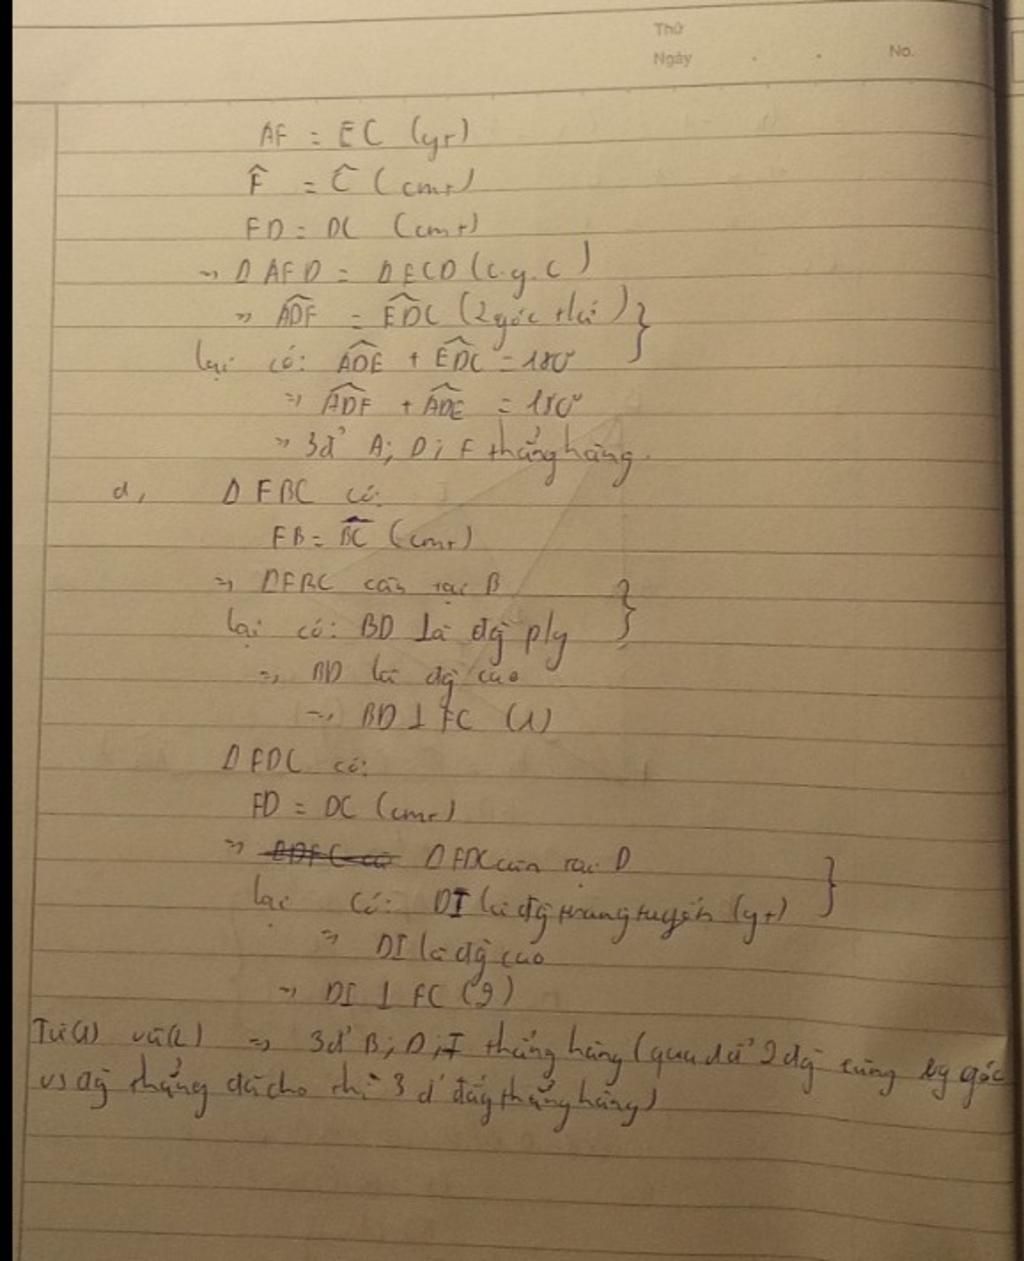 Thứ
Ngày . . No.
AF = EC (gt)
F̂ = Ĉ (cmt)
FD = DC (cmt)
=> Δ AFD = Δ ECD (c.g.c)
=> ADF̂ = EDĈ (2 góc t/ứ)
lại có: ADÊ + EDĈ = 180°
=> ADF̂ + ADÊ = 180°
=> 3đ' A; D; F thẳng hàng.
d, Δ FBC có
FB = BC (cmt)
=> ΔFBC cân tại B
lại có: BD là đg p/g
=> BD là đg cao
=> BD ⊥ FC (1)
Δ FDC có:
FD = DC (cmt)
=> Δ FDC cân tại D
lại có: DI là đg trung tuyến (gt)
=> DI là đg cao
=> DI ⊥ FC (2)
Từ (1) và (2) => 3đ' B; D; I thẳng hàng (qua 2 đg cùng vg góc
vs đg thẳng đã cho thì 3 đ' đấy thẳng hàng)